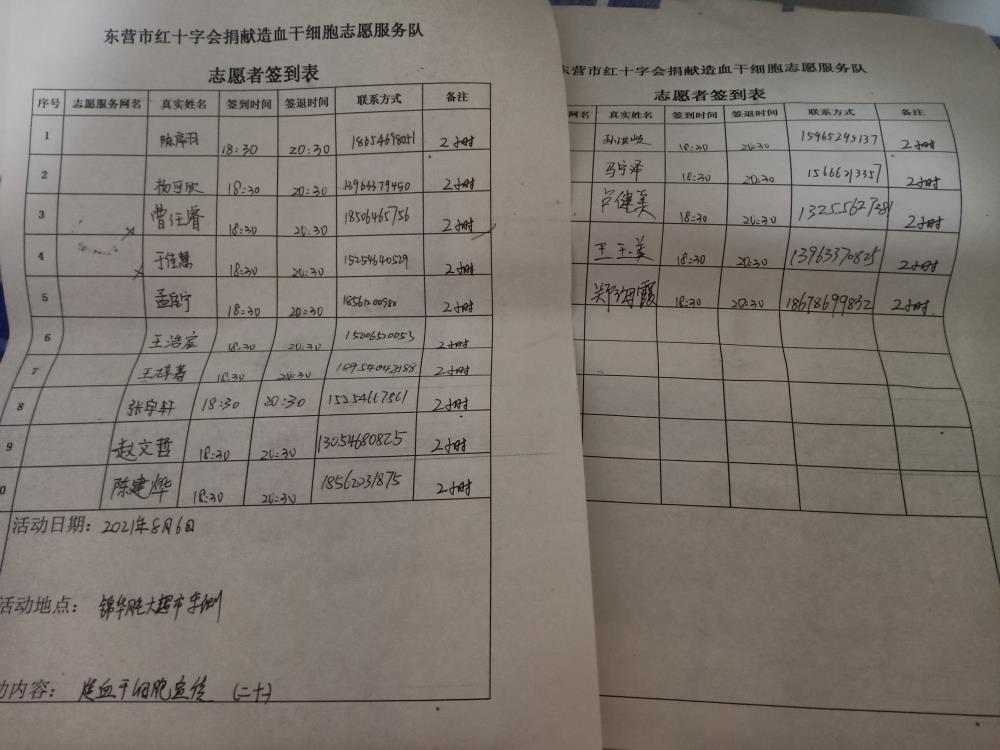 东营市红十字会捐献造血干细胞志愿服务队
志愿者签到表
序号 志愿服务网名 真实姓名 签到时间 签退时间 联系方式 备注
1 陈席羽 18:30 20:30 2小时
2 杨可欣 18:30 20:30 13963379450 2小时
3 曹任睿 18:30 20:30 18506465756 2小时
4 于佳慧 18:30 20:30 15254640529 2小时
5 孟启宁 18:30 20:30 2小时
6 王浩宸 18:30 20:30 15006520053 2小时
7 18:30 20:30 18954042188 2小时
8 张宇轩 18:30 20:30 15254667861 2小时
9 赵文哲 18:30 20:30 13054680825 2小时
0 陈建烨 18:30 20:30 18562031875 2小时
活动日期: 2021年8月6日
活动地点: 锦华胜大超市东侧
动内容: 造血干细胞宣传 (二十)
东营市红十字会捐献造血干细胞志愿服务队
志愿者签到表
网名 真实姓名 签到时间 签退时间 联系方式 备注
18:30 20:30 15965295137 2小时
马宁泽 18:30 20:30 15666213357 2小时
卢健美 18:30 20:30 2小时
王玉美 18:30 20:30 13963370825 2小时
郑海霞 18:30 20:30 18678699832 2小时